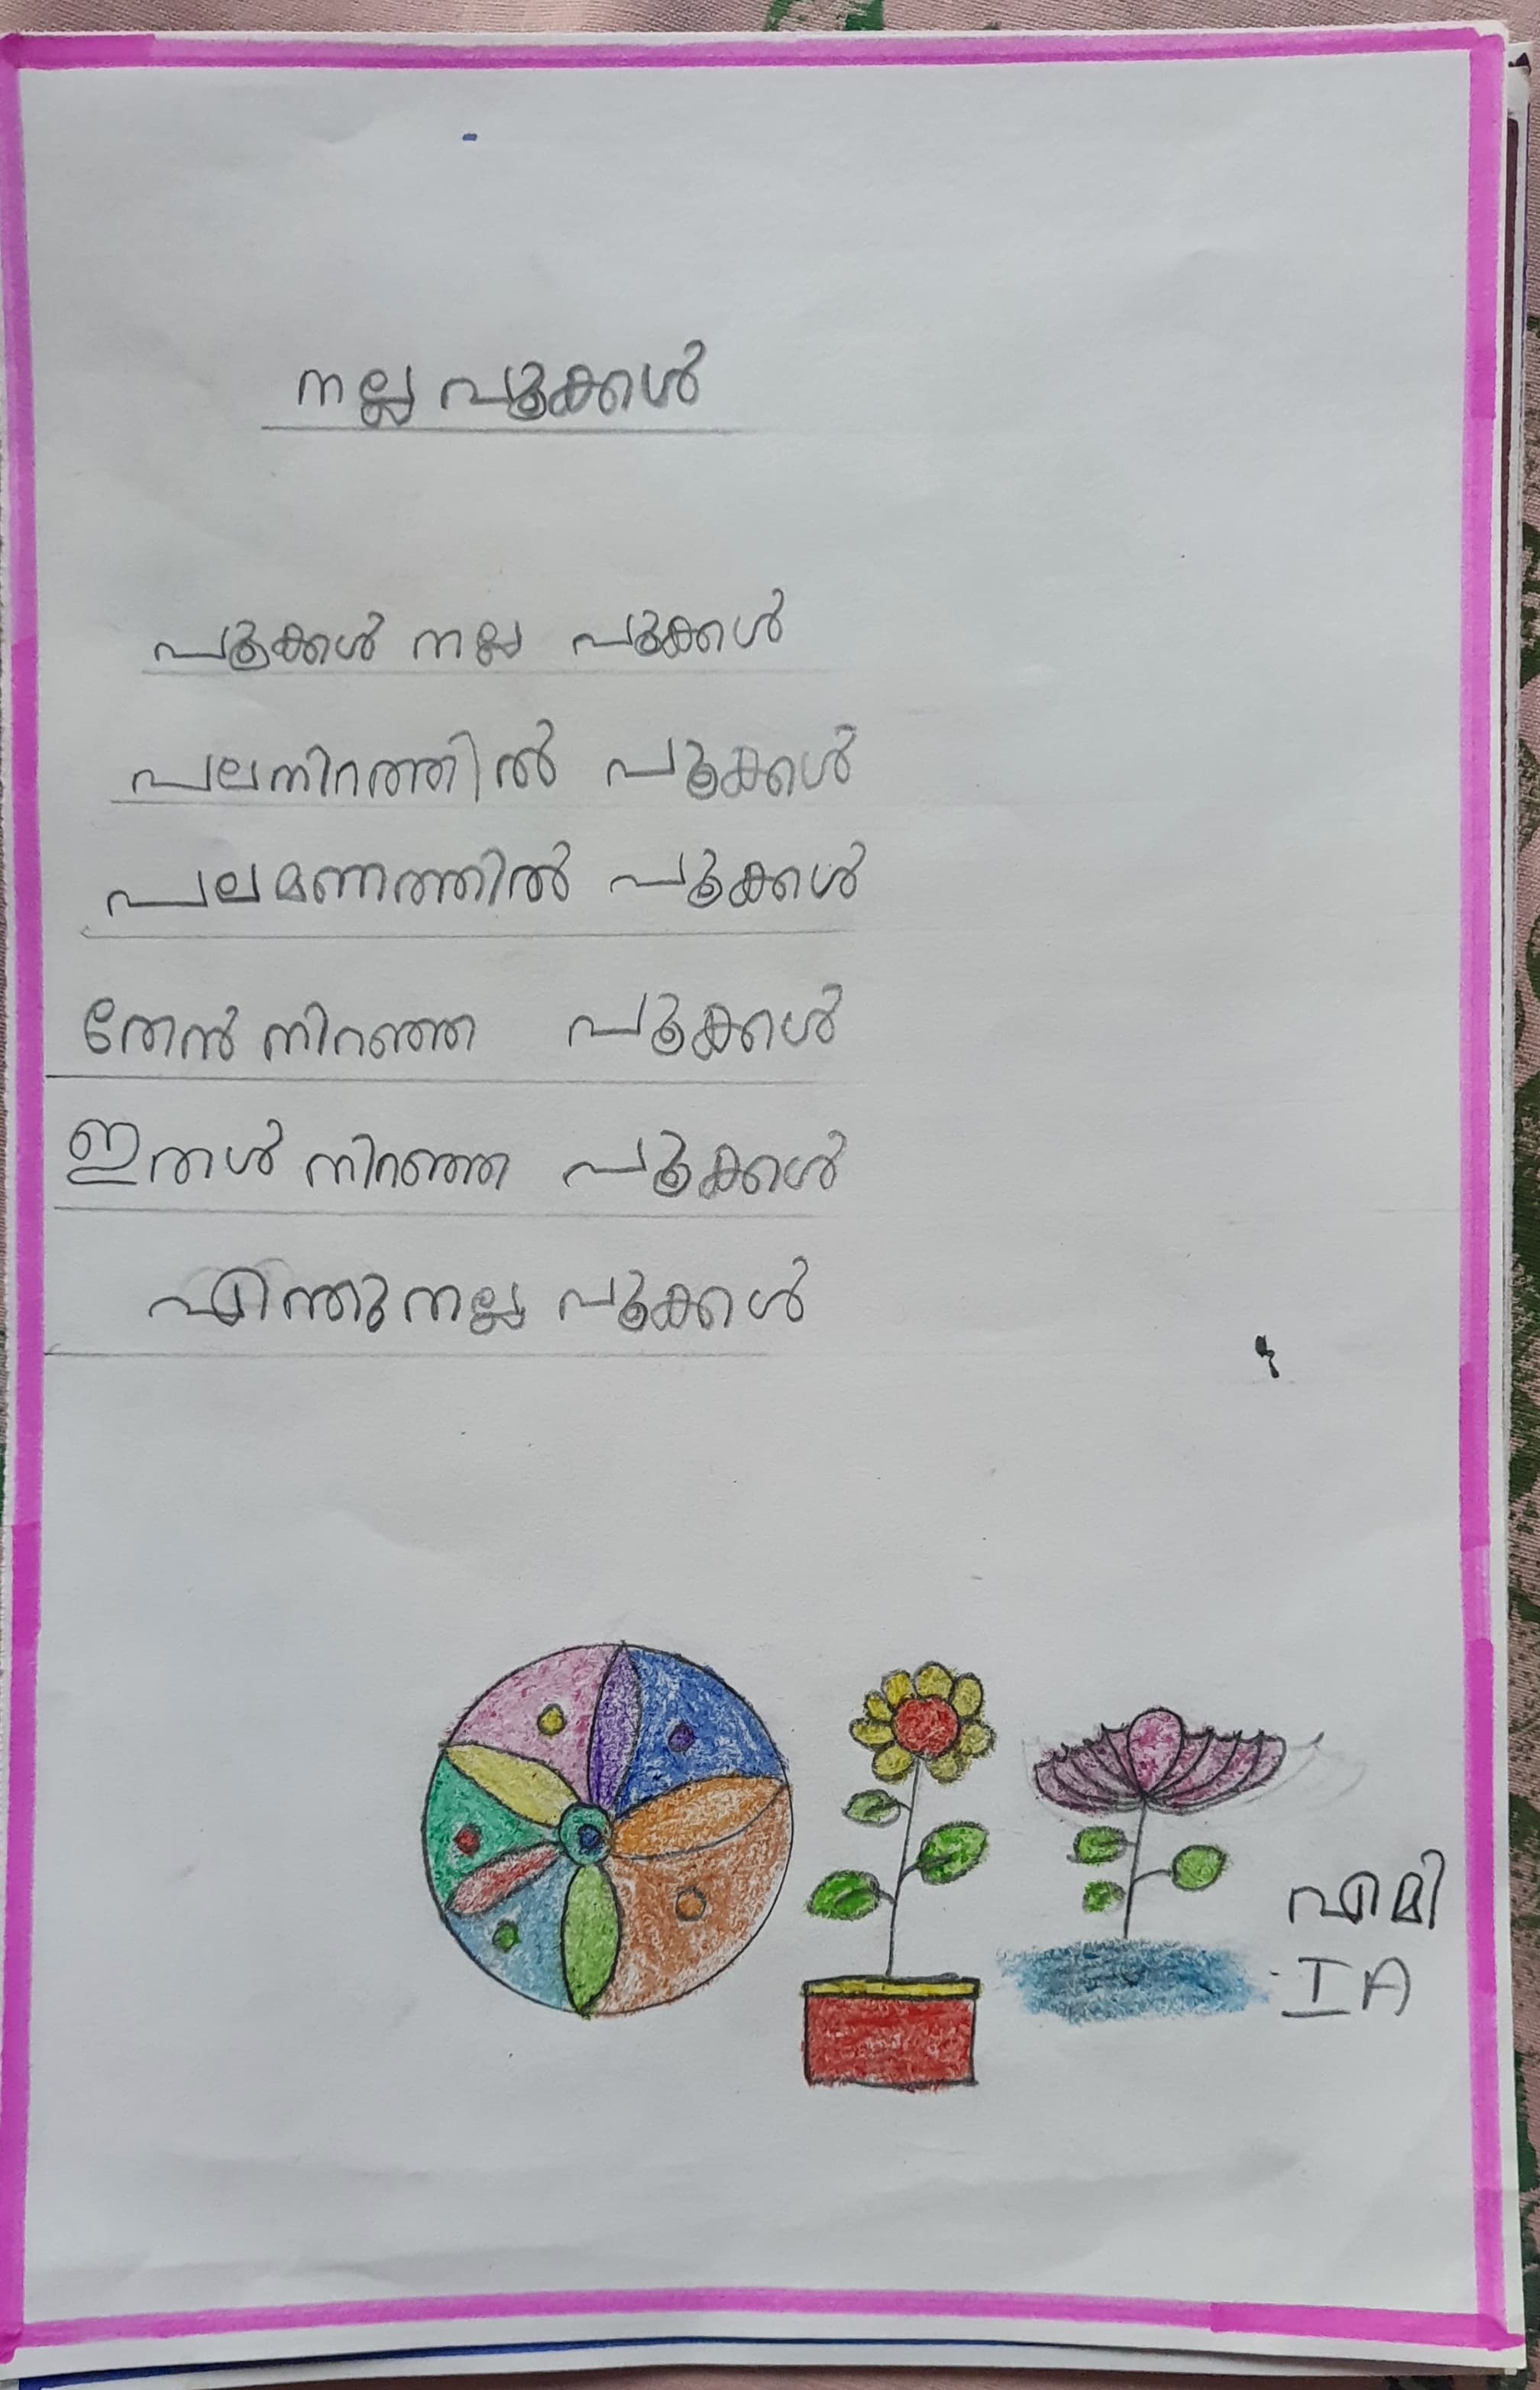 നല്ല പൂക്കൾ
പൂക്കൾ നല്ല പൂക്കൾ
പലനിറത്തിൽ പൂക്കൾ
പലമണത്തിൽ പൂക്കൾ
തേൻ നിറഞ്ഞ പൂക്കൾ
ഇതൾ നിറഞ്ഞ പൂക്കൾ
എന്തുനല്ല പൂക്കൾ
എമി
I A